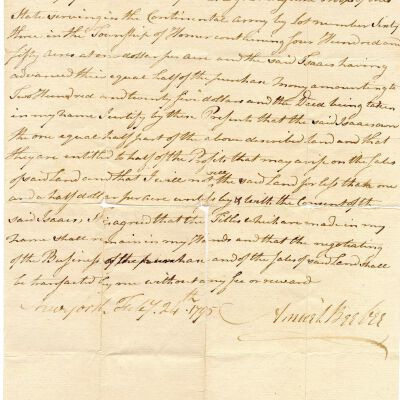 State serving in the Continental Army by lot number Sixty
three in the Township of Homer containing four Hundred and
fifty Acres at one dollar per acre and the said Isaacs having
advanced the equal half of the purchase money amounting to
Two Hundred and twenty five dollars and the Deed being taken
in my name I certify by these Presents that the said Isaacs own
the one equal half part of the above described land and that
they are entitled to half of the Profits that may arise on the sales
of said Land and that I will not sell the said Land for less than one
and a half dollar per acre unless by & with the Consent of the
said Isaacs, It is agreed that the Titles which are made in my
name shall remain in my Hands and that the negotiating
of the Business of the purchase and of the sales of said Land shall
be transacted by me without any fee or reward
Newyork Feby. 24th 1795